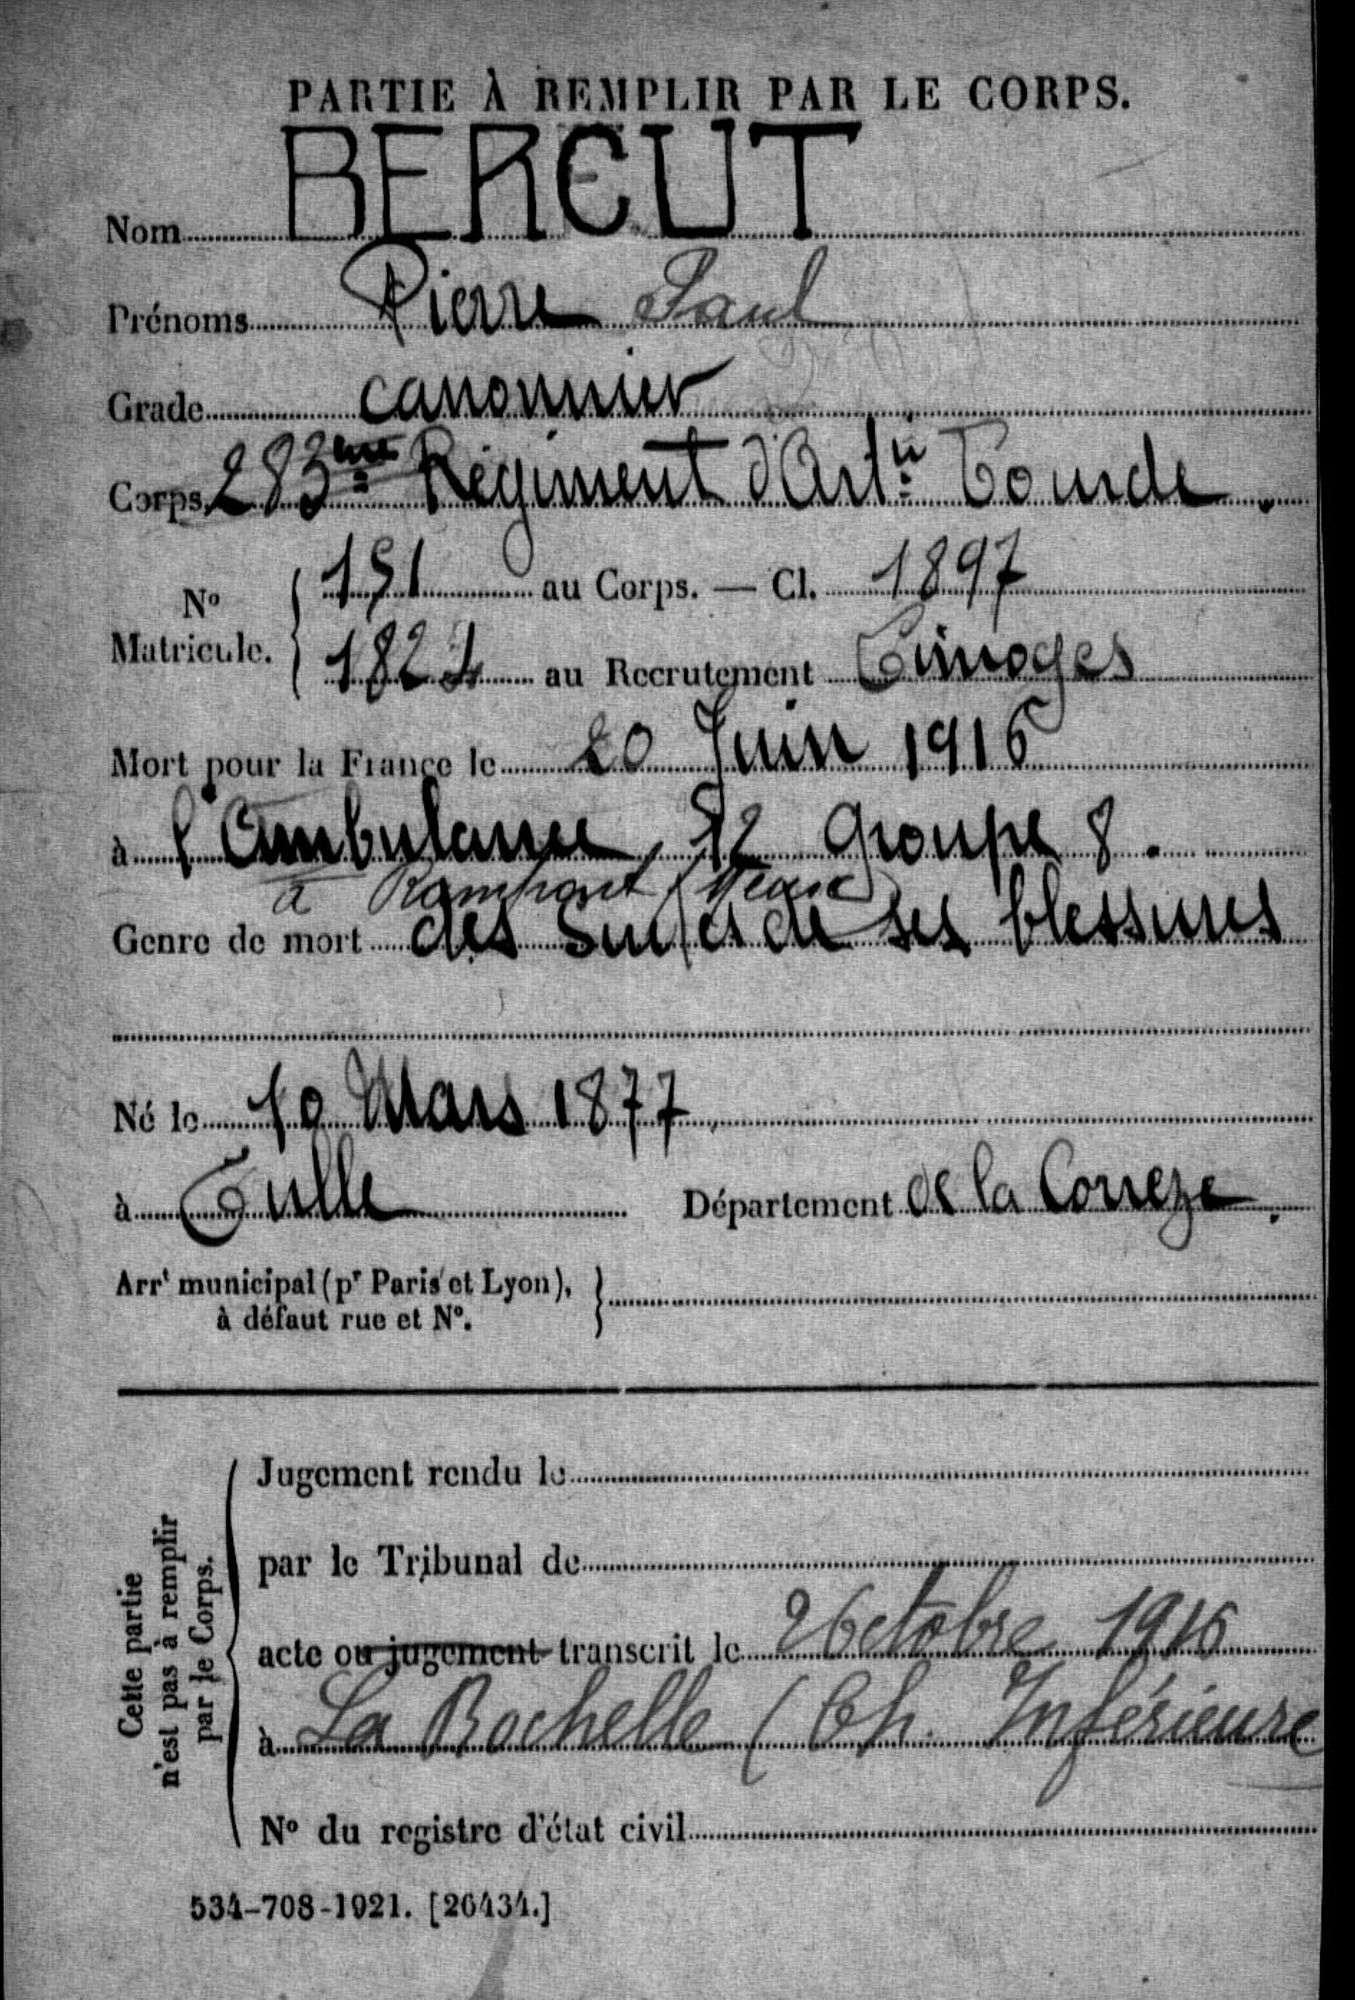 PARTIE À REMPLIR PAR LE CORPS.
Nom BERCUT
Prénoms Pierre Paul
Grade canonnier
Corps 283me Régiment d'Artie Lourde.
No Matricule. 151 au Corps. — Cl. 1897
1824 au Recrutement Limoges
Mort pour la France le 20 Juin 1916
à l'Ambulance 12 groupe 8.
à Rampont (Meuse)
Genre de mort des suites de ses blessures
Né le 10 Mars 1877
à Tulle Département de la Corrèze.
Arrt municipal (pr Paris et Lyon),
à défaut rue et No.
Cette partie
n'est pas à remplir
par le Corps.
Jugement rendu le
par le Tribunal de
acte ou jugement transcrit le 2 Octobre 1916
à La Rochelle (Ch. Inférieure
No du registre d'état civil
534-708-1921. [26434.]